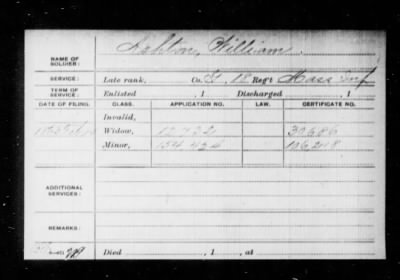 NAME OF SOLDIER: Ashton, William.
SERVICE: Late rank, Co. 18 Reg't Mass Inf
TERM OF SERVICE: Enlisted , 1 Discharged , 1
DATE OF FILING. CLASS. APPLICATION NO. LAW. CERTIFICATE NO.
Invalid,
Widow, 12.422 30.686
Minor, 154.424 106.248
ADDITIONAL SERVICES:
REMARKS:
Died , 1 , at